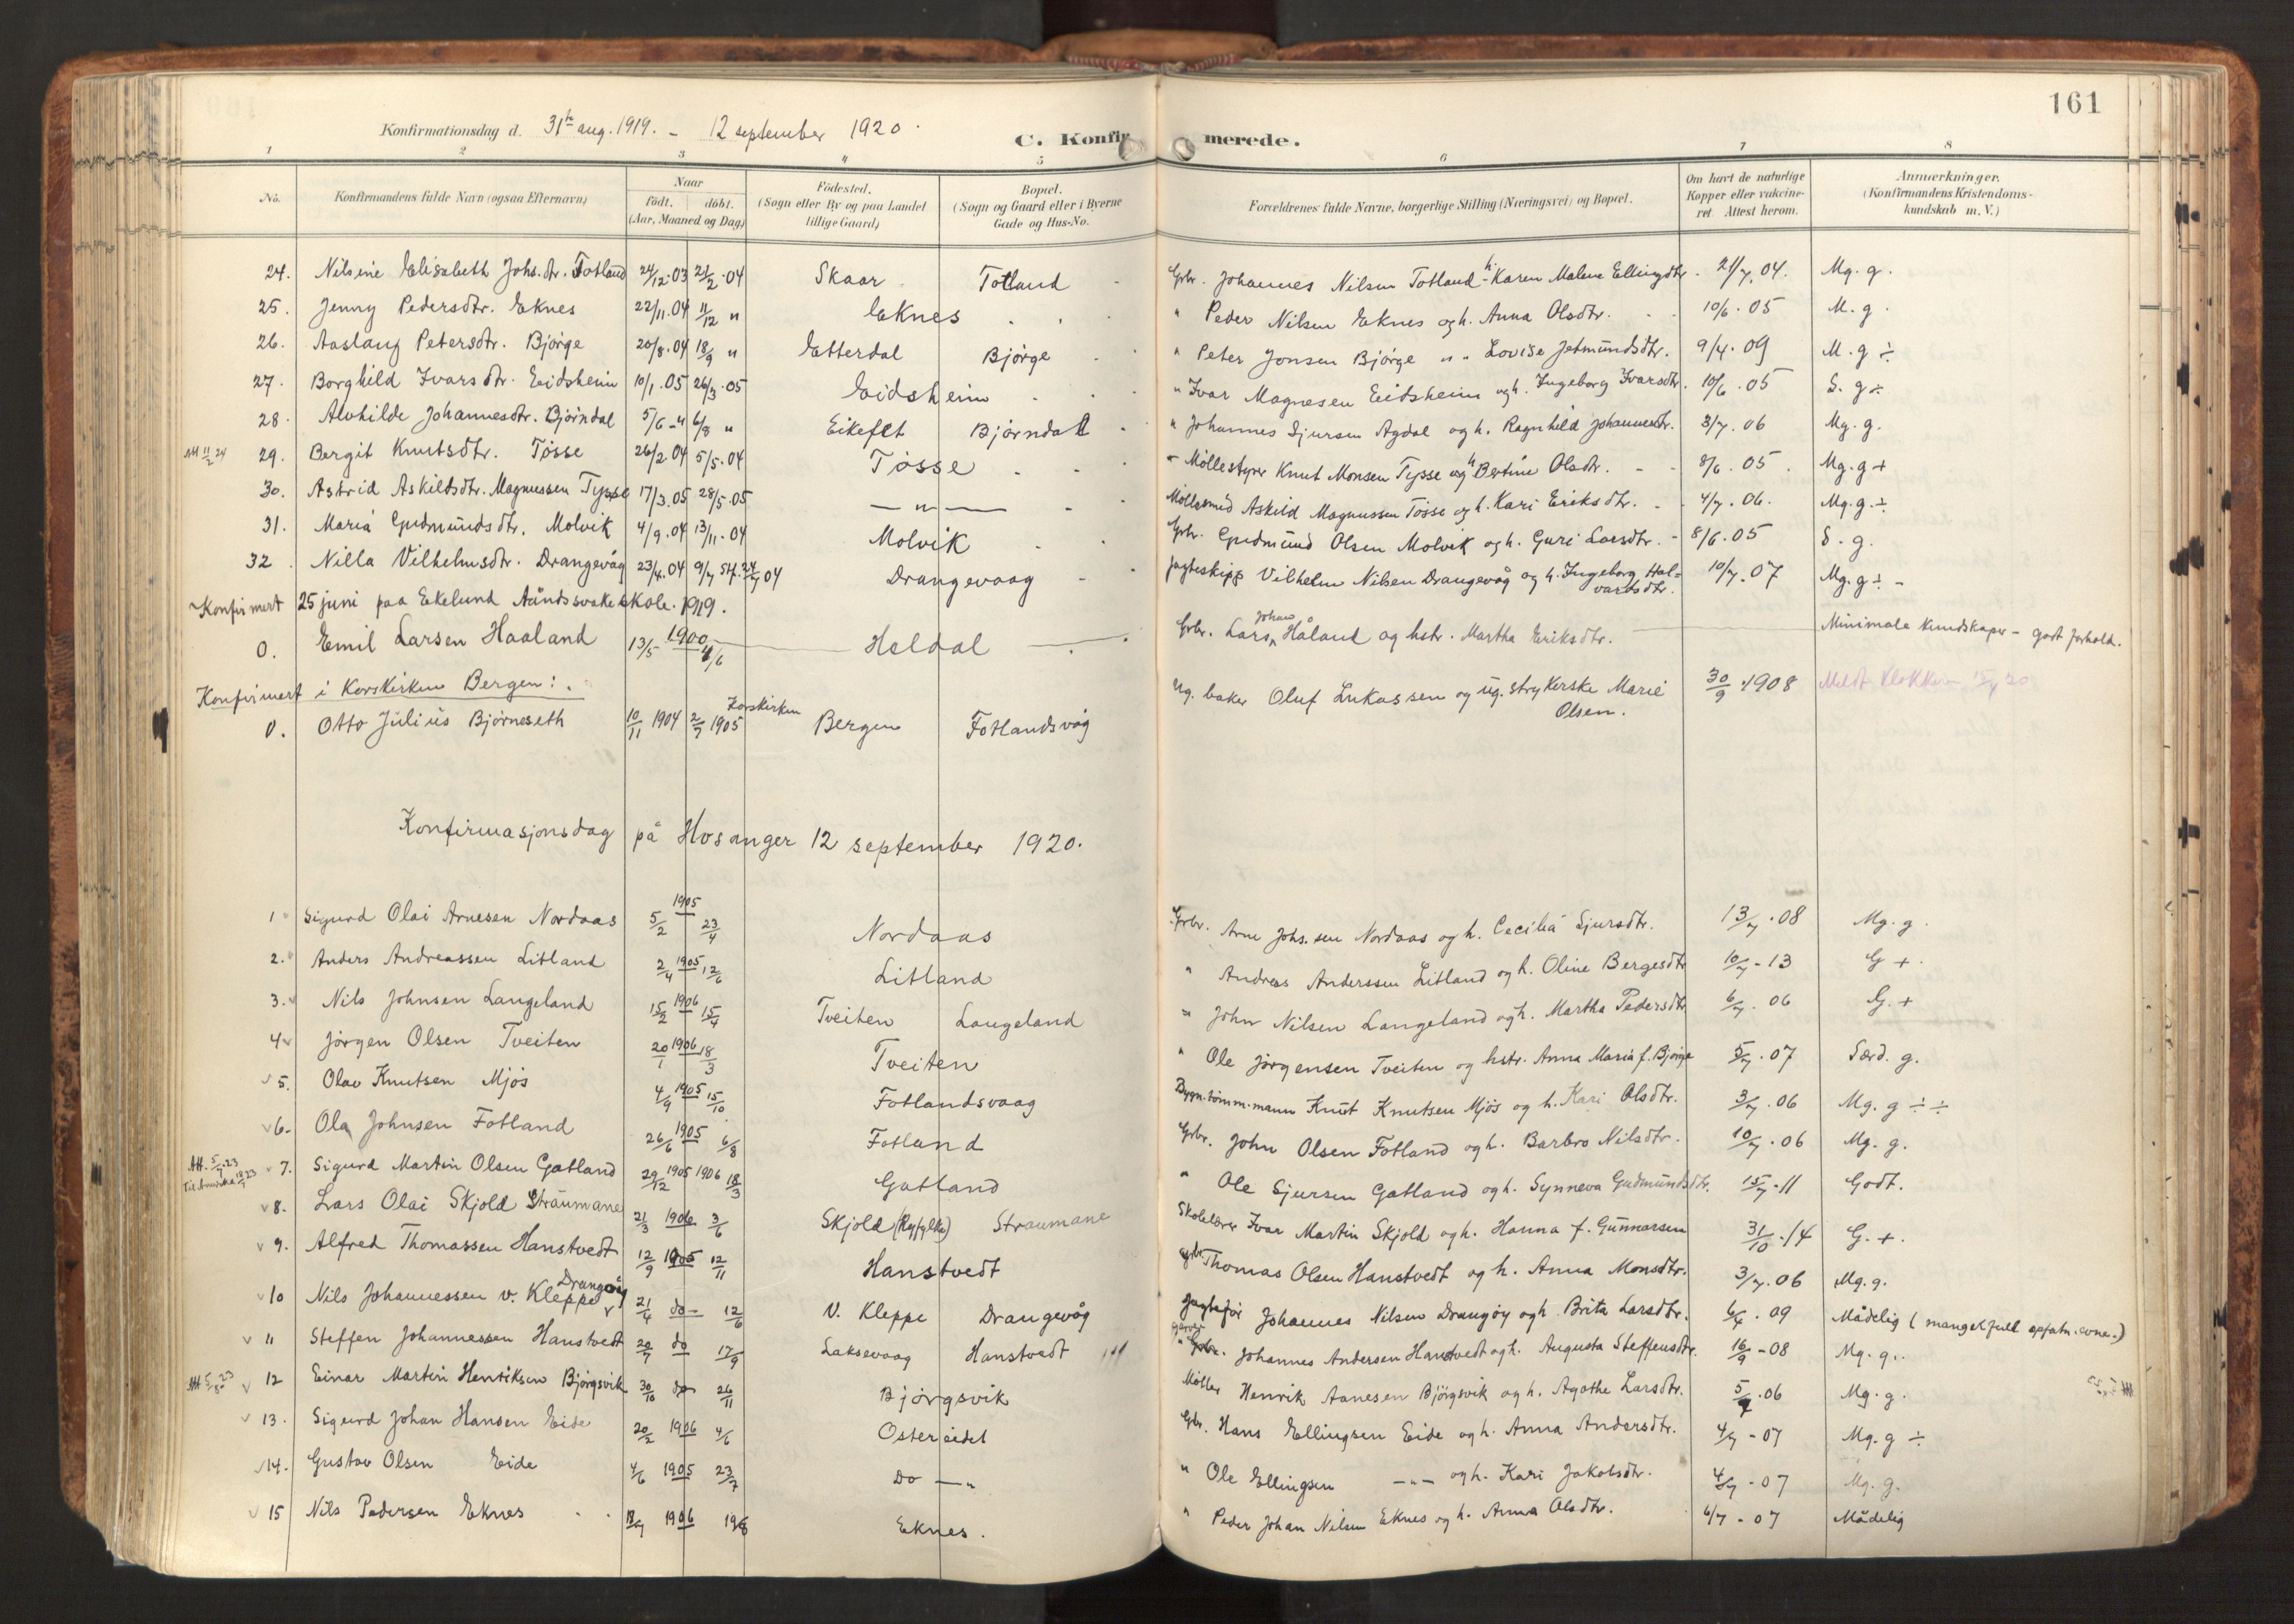 161
Konfirmationsdag d. 31te aug. 1919. - 12 september 1920.
C. Konfirmerede.
1 2 3 4 5 6 7 8
No. Konfirmandens fulde Navn (ogsaa Efternavn) Naar født. døbt. (Aar, Maaned og Dag) Fødested. (Sogn eller By og paa Landet tillige Gaard) Bopæl. (Sogn og Gaard eller i Byerne Gade og Hus-No. Forældrenes fulde Navne, borgerlige Stilling (Næringsvei) og Bopæl. Om havt de naturlige Kopper eller vakcineret Attest herom. Anmerkninger. (Konfirmandens Kristendomskundskab m. V.)
24. Nilsine Elisabeth Johs.dtr. Fotland 24/12.03 21/2.04 Skaar Totland Gbr. Johannes Nilsen Totland - h. Karen Malene Ellingsdtr. 21/7.04. Mg. g.
25. Jenny Pedersdtr. Eknes 22/11.04 11/12 " Eknes " Peder Nilsen Eknes og h. Anna Olsdtr. 10/6.05 M. g.
26. Aaslaug Petersdtr. Bjørge 20/8.04 18/9 " Etterdal Bjørge " Peter Jonsen Bjørge " " Lovise Jetmundsdtr. 9/4.09 M. g ÷
27. Borghild Ivarsdtr. Eidsheim 10/1.05 26/3.05 Eidsheim " Ivar Magnesen Eidsheim og h. Ingeborg Ivarsdtr. 10/6.05 S. g ÷
28. Alvhilde Johannesdtr. Bjørndal 5/6 - " 6/8 " Eikefet Bjørndal " Johannes Sjursen Agdal og h. Ragnhild Johannesdtr. 3/7.06 Mg. g.
Att 11/2 24 29. Bergit Knutsdtr. Tøsse 26/2.04 5/5.04 Tøsse " Møllestyrer Knut Monsen Tysse og h Bertine Olsdtr. 8/6.05. Mg. g +
30. Astrid Askildsdtr. Magnussen Tysse 17/3.05 28/5.05 — " — Møllesmed Askild Magnussen Tøsse og h. Kari Eriksdtr. 4/7.06. Mg. g. ÷
31. Maria Gudmundsdtr. Molvik 4/9.04 13/11.04 Molvik Gbr. Gudmund Olsen Molvik og h. Guri Larsdtr. 8/6.05 S. g.
32. Nilla Vilhelmsdtr. Drangevåg 23/4.04 9/7 st. 24/7 04 Drangevaag Jagteskipp Vilhelm Nilsen Drangevåg og h. Ingeborg Halvardsdtr. 10/7.07 Mg. g ÷ -
Konfirmert 25 juni paa Eikelund Aandssvakeskole. 1919.
0. Emil Larsen Haaland 13/5 1900 4/6 Heldal Grbr. Lars Johan Håland og hstr. Martha Eriksdtr. Minimale kundskaper - godt forhold.
Konfirmert i Korskirken Bergen:.
0. Otto Julius Bjørneseth 10/11 1904 2/7 1905 Korskirken Bergen Fotlandsvåg Ug. baker Oluf Lukassen og ug. strykerske Marie Olsen. 30/9.1908 Meldt Klokker
Konfirmasjonsdag på Hosanger 12 september 1920.
1 Sigurd Olai Arnesen Nordaas 5/2 1905 23/4 Nordaas Grbr. Arne Johs.sen Nordaas og h. Cecilia Sjursdtr. 13/7.08 Mg. g.
2. Anders Andreassen Litland 2/4 1905 12/6 Litland " Andreas Anderssen Litland og h. Oline Bergesdtr 10/7 - 13 G +.
3. Nils Johnsen Langeland 15/2 1906 15/4 Tveiten Langeland " John Nilsen Langeland og h. Martha Pedersdtr 6/7.06 G. +
4 Jørgen Olsen Tveiten 20/1 1906 18/3 Tveiten " Ole Jørgensen Tveiten og hstr. Anna Maria f. Bjørge 5/7.07 Særd. g.
5. Olav Knutsen Mjøs 4/9 1905 15/10 Fotlandsvaag Bygn.tømm.mann Knut Knutsen Mjøs og h. Kari Olsdtr. 3/7.06 Mg. g ÷ ÷
6. Ola Johnsen Fotland 26/6 1905 6/8 Fotland Grbr. John Olsen Fotland og h. Barbro Nilsdtr. 10/7.06 Mg. g.
Att. 5/7 23 Til Amerika 7. Sigurd Martin Olsen Gatland 29/12 1905 1906 18/3 Gatland " Ole Sjursen Gatland og h. Synneva Gudmundsdtr. 15/7 - 11 Godt.
8. Lars Olai Skjold Straumane 21/3 1906 3/6 Skjold (Ryfylke) Straumane Skolelærer Ivar Martin Skjold og h. Hanna f. Gunnarsen 31/10.14 G. +.
9. Alfred Thomassen Hanstvedt 12/9 1905 12/11 Hanstvedt Grbr. Thomas Olsen Hanstvedt og h. Anna Monsdtr. 3/7.06 Mg. g.
10 Nils Johannessen v. Kleppe Drangøy 21/4 do - 12/6 V. Kleppe Drangevåg Jagtefør Johannes Nilsen Drangøy og h. Brita Larsdtr. 6/4.09 Mådelig (mangelfull opfatn.evne.)
11 Steffen Johannessen Hanstvedt 20/7 do 17/9 Laksevaag Hanstvedt garver Johannes Andersen Hanstvedt og h. Augusta Steffensdtr. 16/9 - 08 Mg. g.
Att 5/8 23 12 Einar Martin Henriksen Bjørgsvik 30/10 do 26/11 Bjørgsvik Møller Henrik Aanesen Bjørgsvik og h. Agathe Larsdtr. 5/7.06 Mg. g.
13. Sigurd Johan Hansen Eide 20/2 1906 4/6 Ostereidet Gbr. Hans Ellingsen Eide og h. Anna Andersdtr. 4/7 - 07 Mg. g ÷
14. Gustav Olsen Eide 4/6 1905 23/7 Do — " " Ole Ellingsen — " — og h. Kari Jakobsdtr. 4/7 - 07 Mg. g.
15 Nils Pedersen Eknes 18/7 1906 19/8 Eknes. " Peder Johan Nilsen Eknes og h. Anna Olsdtr. 6/7 - 07 Mådelig